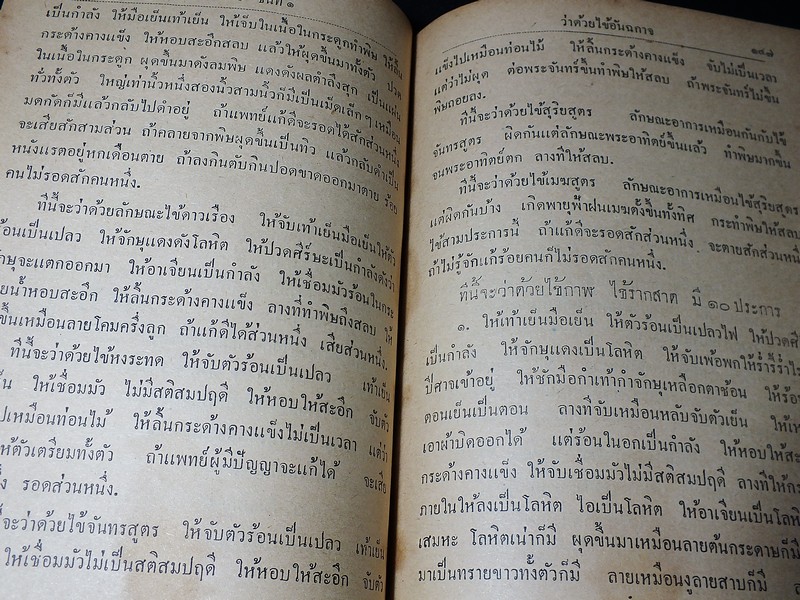 ชั้นที่ ๑
เป็นกำลัง ให้มือเย็นเท้าเย็น ให้เจ็บในเนื้อในกระดูกทำพิษ ให้ลิ้น
กระด้างคางแข็ง ให้หอบสะอึกสลบ แล้วให้ผุดขึ้นมาทั้งตัว ปวด
ในเนื้อในกระดูก ผุดขึ้นมาดังลมพิษ แดงดังผลตำลึงสุก เป็นแผ่น
ทั่วทั้งตัว ใหญ่เท่านิ้วหนึ่งสองนิ้วสามนิ้วก็มีเป็นเม็ดเล็กๆ เหมือน
มดกัดก็มีแล้วกลับไปดำอยู่ ถ้าแพทย์แก้ดีจะรอดได้สักส่วนหนึ่ง
จะเสียสักสามส่วน ถ้าคลายจากพิษผุดขึ้นเป็นทิว แล้วกลับดำเป็น
หนังแรตอยู่หกเดือนตาย ถ้าลงกินตับกินปอดขาดออกมาตาย ร้อย
คนไม่รอดสักคนหนึ่ง.
ทีนี้จะว่าด้วยลักษณะไข้ดาวเรือง ให้จับเท้าเย็นมือเย็นให้ตัว
ร้อนเป็นเปลว ให้จักษุแดงดังโลหิต ให้ปวดศีร์ษะเป็นกำลังดังว่า
จักษุจะแตกออกมา ให้อาเจียนเป็นกำลัง ให้เชื่อมมัวร้อนในกระ
หายน้ำหอบสะอึก ให้ลิ้นกระด้างคางแข็ง ลางทีทำพิษถึงสลบ ให้
ขึ้นเหมือนลายโคมครึ่งลูก ถ้าแก้ดีได้ส่วนหนึ่ง เสียส่วนหนึ่ง.
ทีนี้จะว่าด้วยไข้หงระทด ให้จับตัวร้อนเป็นเปลว เท้าเย็น
เย็น ให้เชื่อมมัว ไม่มีสติสมปฤดี ให้หอบให้สะอึก จับตัว
ไปเหมือนท่อนไม้ ให้ลิ้นกระด้างคางแข็งไม่เป็นเวลา แต่ว่า
ให้ตัวเตรียมทั้งตัว ถ้าแพทย์ผู้มีปัญญาจะแก้ได้ จะเสีย
รอดส่วนหนึ่ง.
จะว่าด้วยไข้จันทรสูตร ให้จับตัวร้อนเป็นเปลว เท้าเย็น
ให้เชื่อมมัวไม่เป็นสติสมปฤดี ให้หอบให้สะอึก จับตัว
ว่าด้วยไข้อันฉกาจ
แข็งไปเหมือนท่อนไม้ ให้ลิ้นกระด้างคางแข็ง จับไม่เป็นเวลา
แต่ว่าไม่ผุด ต่อพระจันทร์ขึ้นทำพิษให้สลบ ถ้าพระจันทร์ไม่ขึ้น
พิษถอยลง.
ทีนี้จะว่าด้วยไข้สุริยสูตร ลักษณะอาการเหมือนกันกับไข้
จันทรสูตร ผิดกันแต่ลักษณะพระอาทิตย์ขึ้นแล้ว ทำพิษมากขึ้น
จนพระอาทิตย์ตก ลางทีให้สลบ.
ทีนี้จะว่าด้วยไข้เมฆสูตร ลักษณะอาการเหมือนไข้สุริยสูตร
แต่ผิดกันบ้าง เกิดพายุฟ้าฝนเมฆตั้งขึ้นทั้งทิศ กระทำพิษให้สลบ
ไข้สามประการนี้ ถ้าแก้ดีจะรอดสักส่วนหนึ่ง จะตายสักส่วนหนึ่ง
ถ้าไม่รู้จักแก้ร้อยคนก็ไม่รอดสักคนหนึ่ง.
ทีนี้จะว่าด้วยไข้กาฬ ไข้รากสาด มี ๑๐ ประการ
๑. ให้เท้าเย็นมือเย็น ให้ตัวร้อนเป็นเปลวไฟ ให้ปวดศี
เป็นกำลัง ให้จักษุแดงเป็นโลหิต ให้จับเพ้อพกให้ร่ำรี้ร่ำไร
ปีศาจเข้าอยู่ ให้ชักมือกำเท้ากำจักษุเหลือกตาช้อน ให้ร้อน
ตอนเย็นเป็นตอน ลางทีจับเหมือนหลับจับตัวเย็น ให้เห
เอาผ้าบิดออกได้ แต่ร้อนในอกเป็นกำลัง ให้หอบให้สะ
กระด้างคางแข็ง ให้จับเชื่อมมัวไม่มีสติสมปฤดี ลางทีให้กร
ภายในให้ลงเป็นโลหิต ไอเป็นโลหิต ให้อาเจียนเป็นโลห
เสมหะ โลหิตเน่าก็มี ผุดขึ้นมาเหมือนลายต้นกระดาษก็มี
มาเป็นทรายขาวทั้งตัวก็มี ลายเหมือนงูลายสาบก็มี